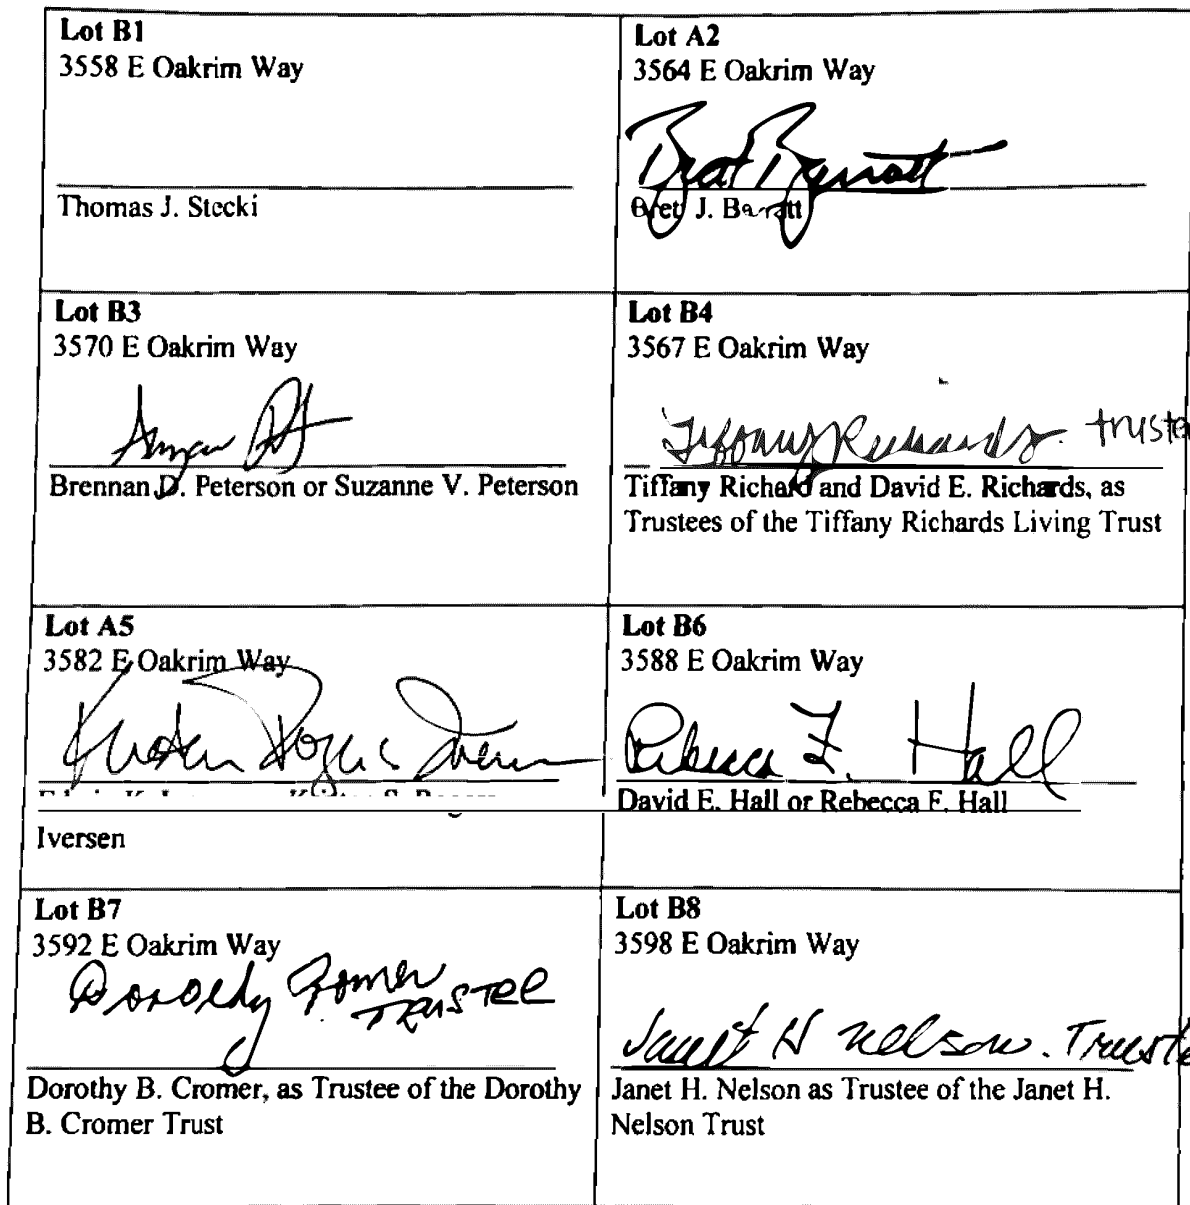 Lot B1
3558 E Oakrim Way
Thomas J. Stecki
Lot A2
3564 E Oakrim Way
Bret Barratt
Bret J. Barratt
Lot B3
3570 E Oakrim Way
Brennan D. Peterson or Suzanne V. Peterson
Lot B4
3567 E Oakrim Way
Tiffany Richards. truste
Tiffany Richard and David E. Richards, as
Trustees of the Tiffany Richards Living Trust
Lot A5
3582 E Oakrim Way
Iversen
Lot B6
3588 E Oakrim Way
Rebecca F. Hall
David E. Hall or Rebecca F. Hall
Lot B7
3592 E Oakrim Way
Dorothy Cromer
TRUSTEE
Dorothy B. Cromer, as Trustee of the Dorothy
B. Cromer Trust
Lot B8
3598 E Oakrim Way
Janet H Nelson. Truste
Janet H. Nelson as Trustee of the Janet H.
Nelson Trust